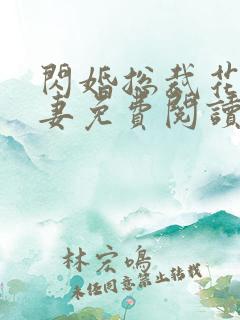 閃婚總裁花
妻免費閱讀
林宏鳴
未經同意禁止轉載